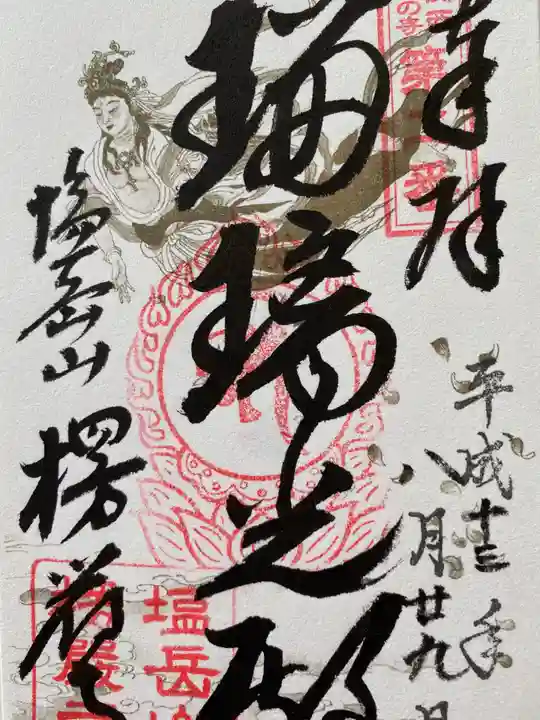 奉拝
平成十三年
八月廿九日
瑠璃光殿
塩岳山
楞厳
塩岳山
楞厳寺